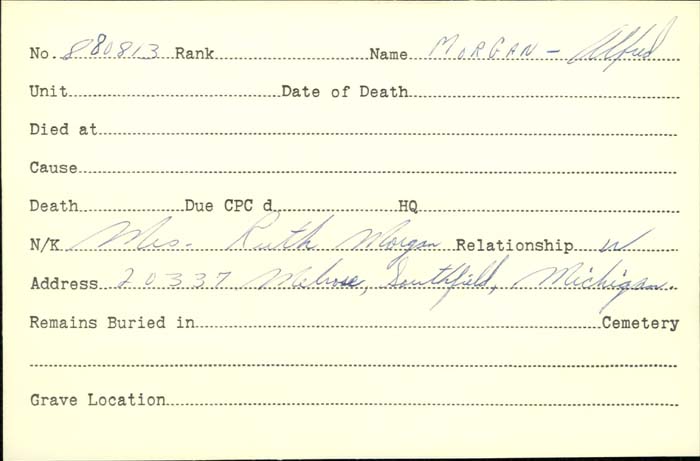 No. 880813 Rank Name MORGAN - Alfred
Unit Date of Death
Died at
Cause
Death Due CPC d. HQ
N/K Mrs. Ruth Morgan Relationship W
Address 20337 Melrose, Southfield, Michigan.
Remains Buried in Cemetery
Grave Location